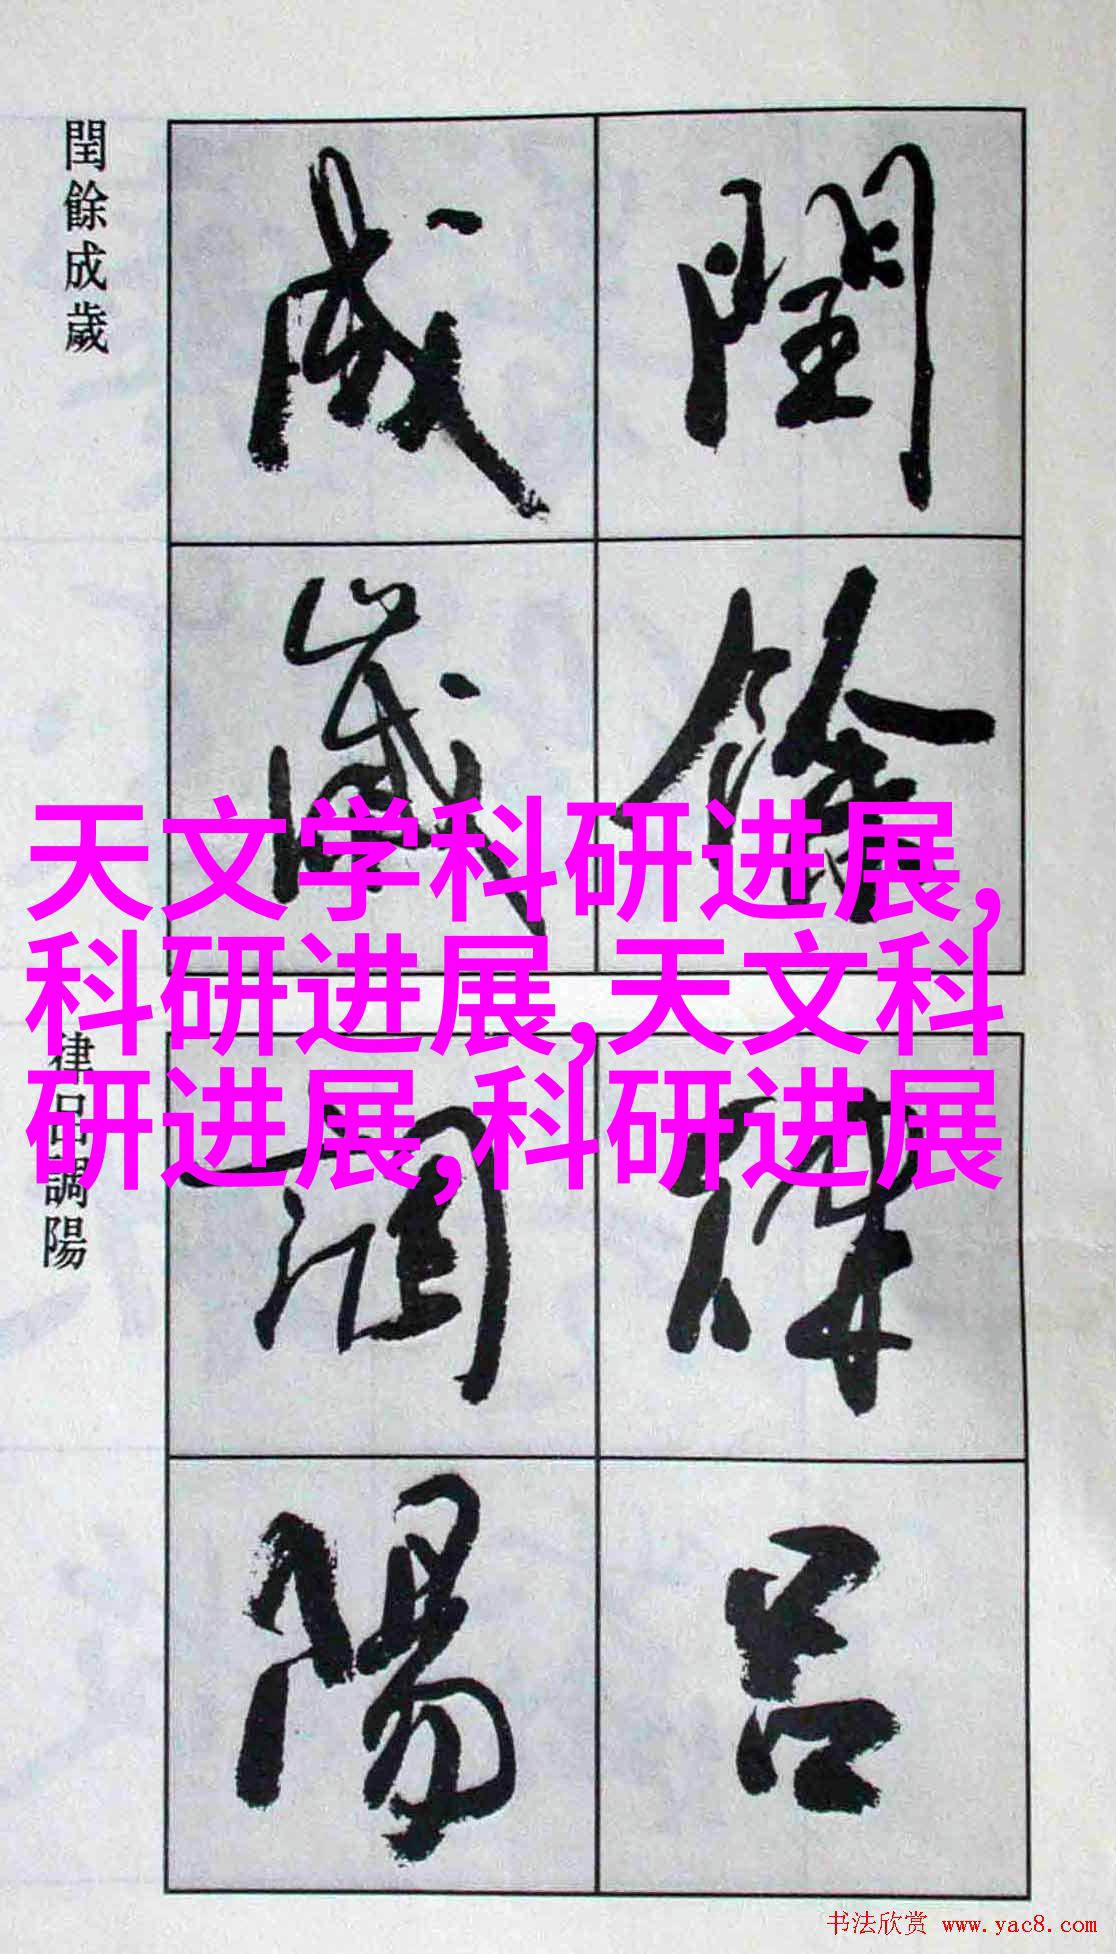 閏餘成歲
閏餘
成歲
天文学科研进展,
科研进展,天文科
研进展,科研进展
律呂調陽
律呂
調陽
书法欣赏 www.yac8.com